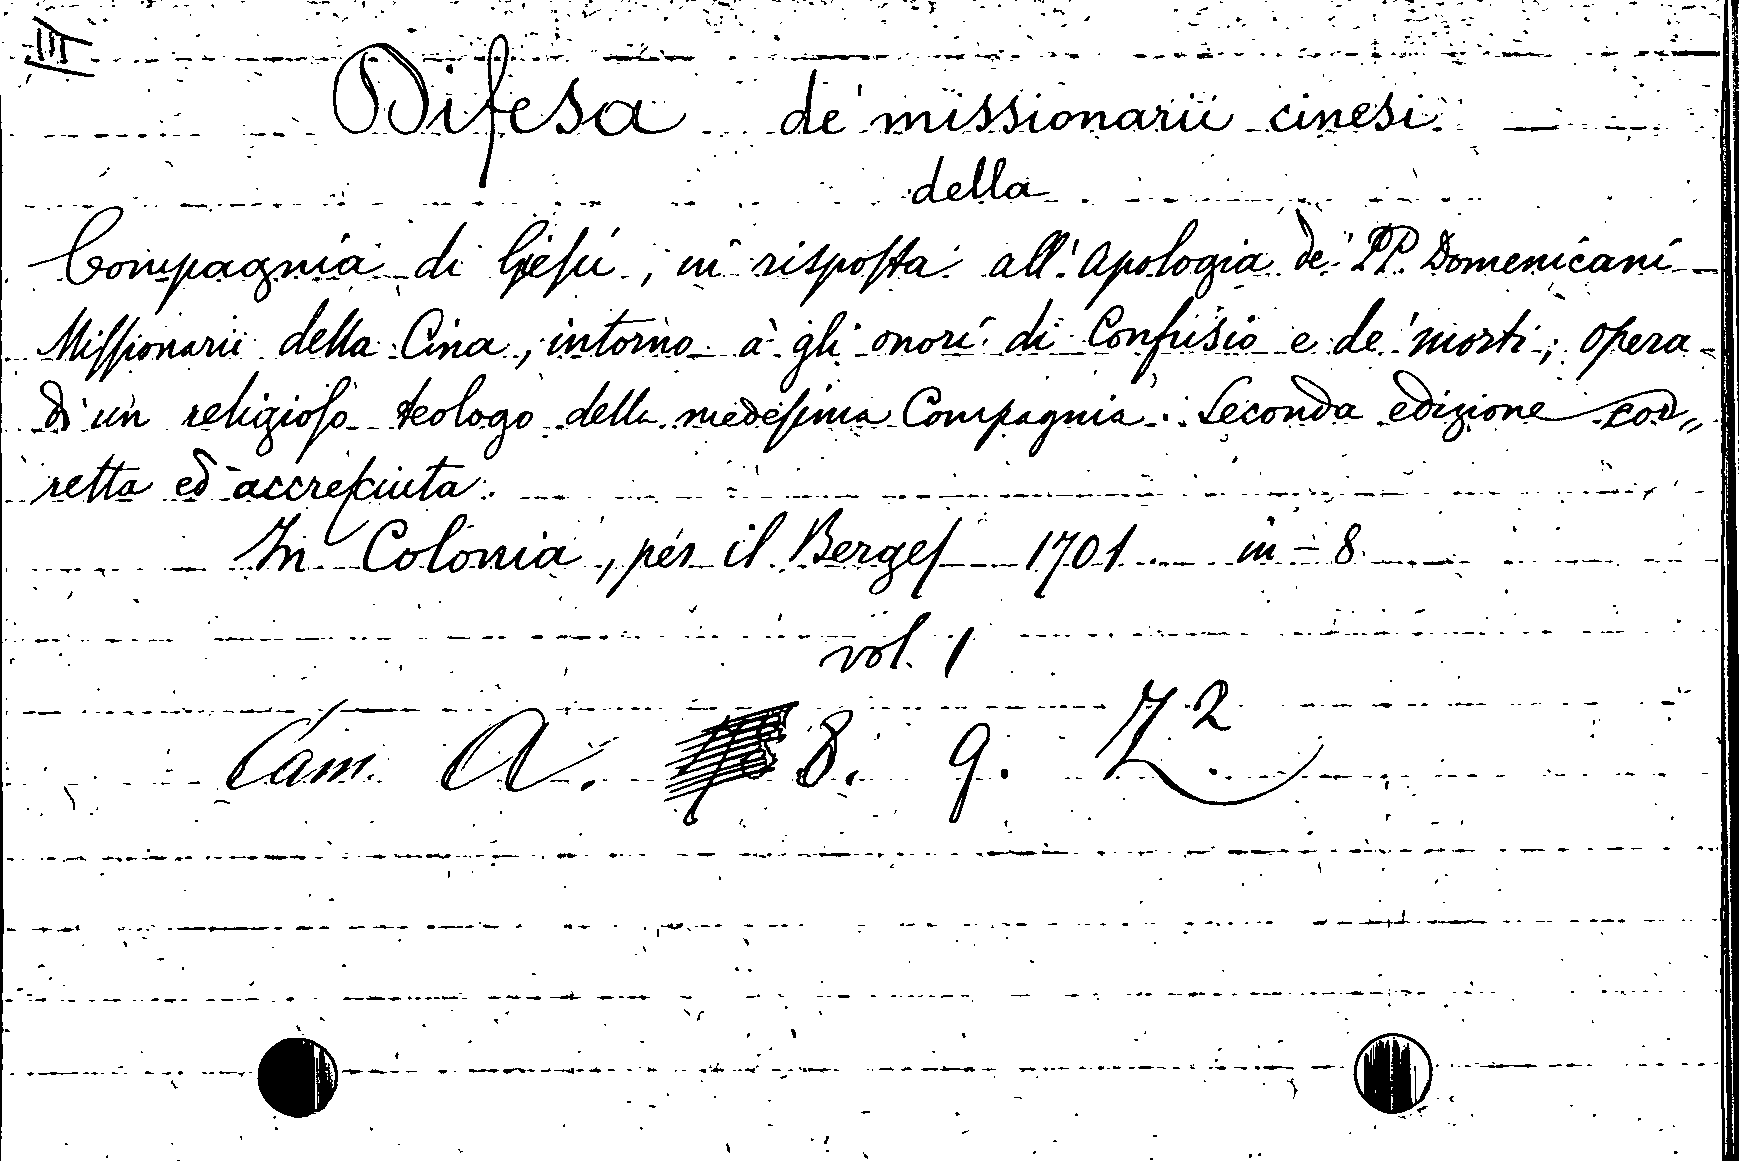 III
Difesa de' missionarii cinesi
della
Compagnia di Giesù, in risposta all'Apologia de' PP. Domenicani
Missionarii della Cina, intorno à gli onori di Confusio e de' morti; opera
di un religioso teologo della medesima Compagnia. Seconda edizione cor„
retta ed accresciuta.
In Colonia, per il Berges 1701 in-8.
vol. 1
Cam. A. 8. 9. Z²